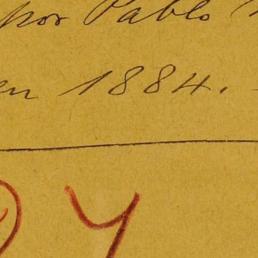 por Pablo
en 1884.